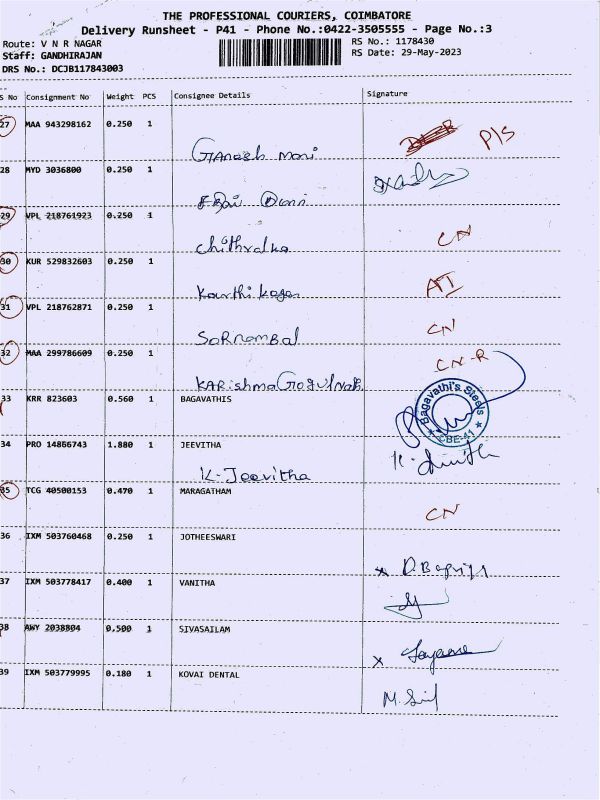 THE PROFESSIONAL COURIERS, COIMBATORE
Delivery Runsheet - P41 - Phone No.:0422-3505555 - Page No.:3
Route: V N R NAGAR RS No.: 1178430
Staff: GANDHIRAJAN RS Date: 29-May-2023
DRS No.: DCJB117843003
S No Consignment No Weight PCS Consignee Details Signature
27 MAA 943298162 0.250 1
P/S
Ganesh mani
28 MYD 3036800 0.250 1
29 VPL 218761923 0.250 1
CN
Chithralka
30 KUR 529832603 0.250 1
AFI
31 VPL 218762871 0.250 1
CN
SORnambal
32 MAA 299786609 0.250 1
CN-R
KARishma
33 KRR 823603 0.560 1 BAGAVATHIS
Bagavathi's Steels
CBE-41
34 PRO 14866743 1.880 1 JEEVITHA
K-Jeevitha
35 TCG 40500153 0.470 1 MARAGATHAM
CN
36 IXM 503760468 0.250 1 JOTHEESWARI
37 IXM 503778417 0.400 1 VANITHA
38 AWY 2038804 0.500 1 SIVASAILAM
39 IXM 503779995 0.180 1 KOVAI DENTAL